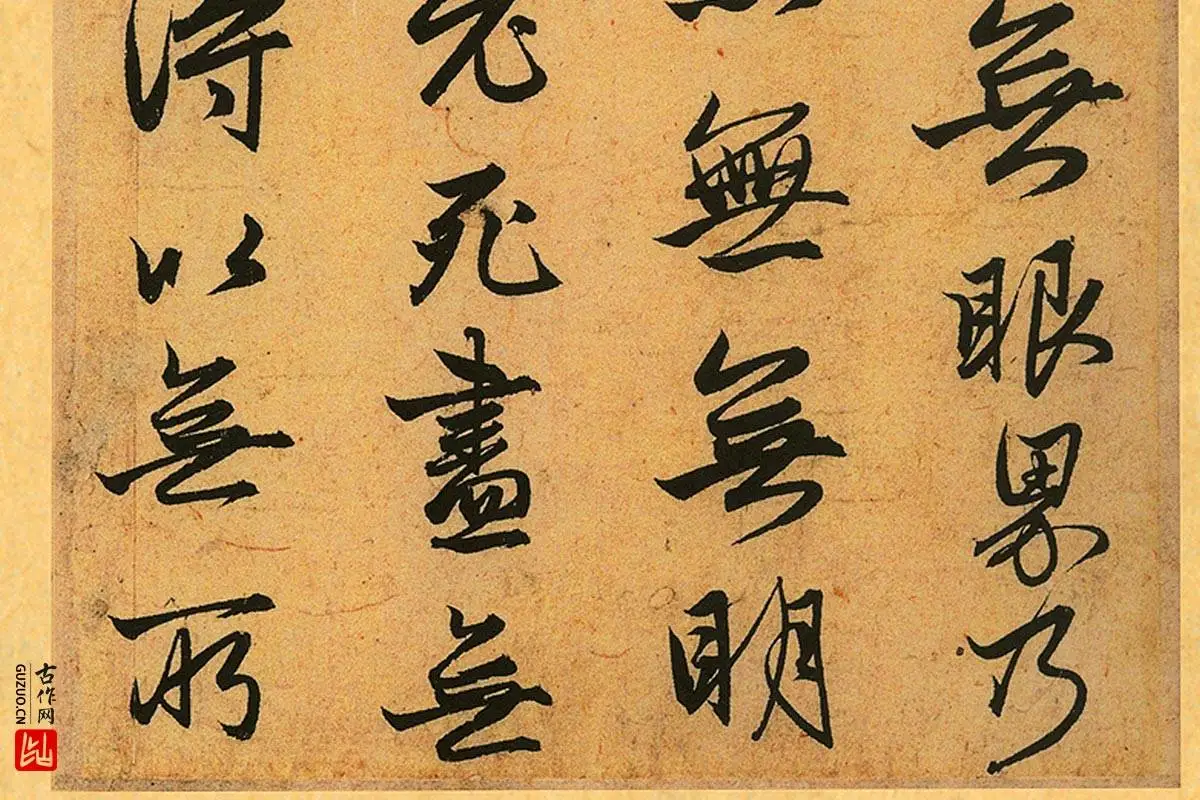 無眼界乃
無無明
老死盡無
得以無所
古作网
GUZUO.CN